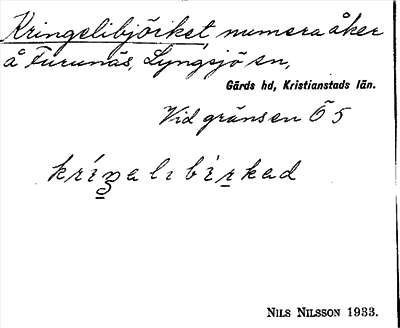 Kringelibjörket, numera åker
å Furunäs, Lyngsjö sn,
Gärds hd, Kristianstads län.
Vid gränsen Ö 5
kríŋalıbırkad
NILS NILSSON 1933.